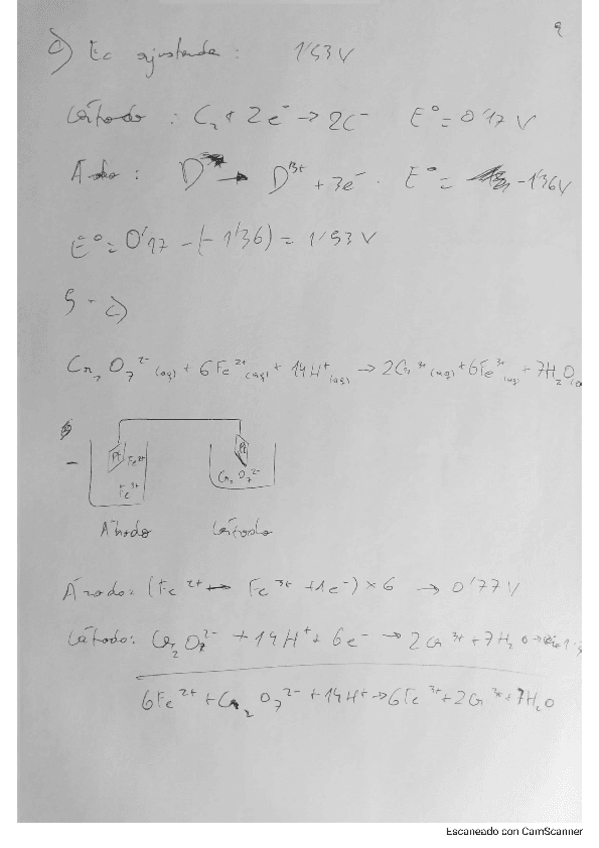 9
c) Ec ajustada : 1'53 V
Cátodo : C₂ + 2e⁻ → 2C⁻ E° = 0'17 V
Ánodo : D → D³⁺ + 3e⁻ . E° = -1'36 V
E° = 0'17 - (-1'36) = 1'53 V
5 - c)
Cr₂O₇²⁻ (aq) + 6Fe²⁺ (aq) + 14H⁺ (aq) → 2Cr³⁺ (aq) + 6Fe³⁺ (aq) + 7H₂O
-
Pt Fe²⁺ Pt
Fe³⁺ Cr₂O₇²⁻
Ánodo Cátodo
Ánodo: (Fe²⁺ → Fe³⁺ + 1e⁻) × 6 → 0'77 V
Cátodo: Cr₂O₇²⁻ + 14H⁺ + 6e⁻ → 2Cr³⁺ + 7H₂O →
6Fe²⁺ + Cr₂O₇²⁻ + 14H⁺ → 6Fe³⁺ + 2Cr³⁺ + 7H₂O
Escaneado con CamScanner